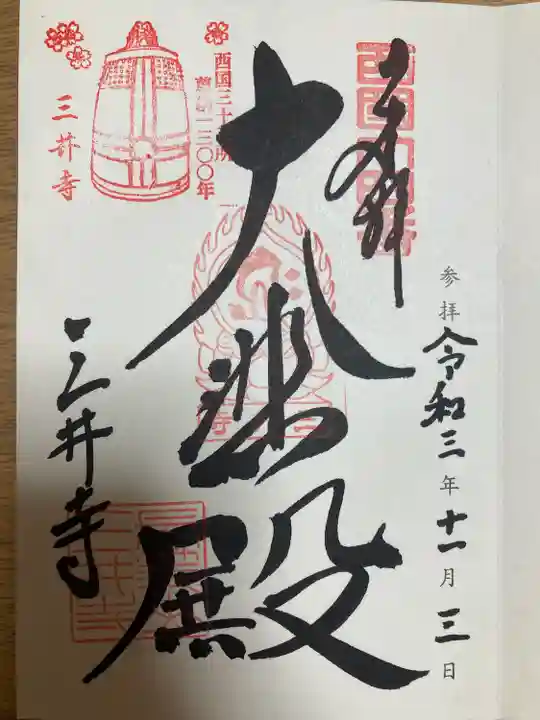 奉拝
西国十四番
参拝 令和三年十一月三日
大悲殿
西国三十三所
草創一三〇〇年
三井寺
三井寺